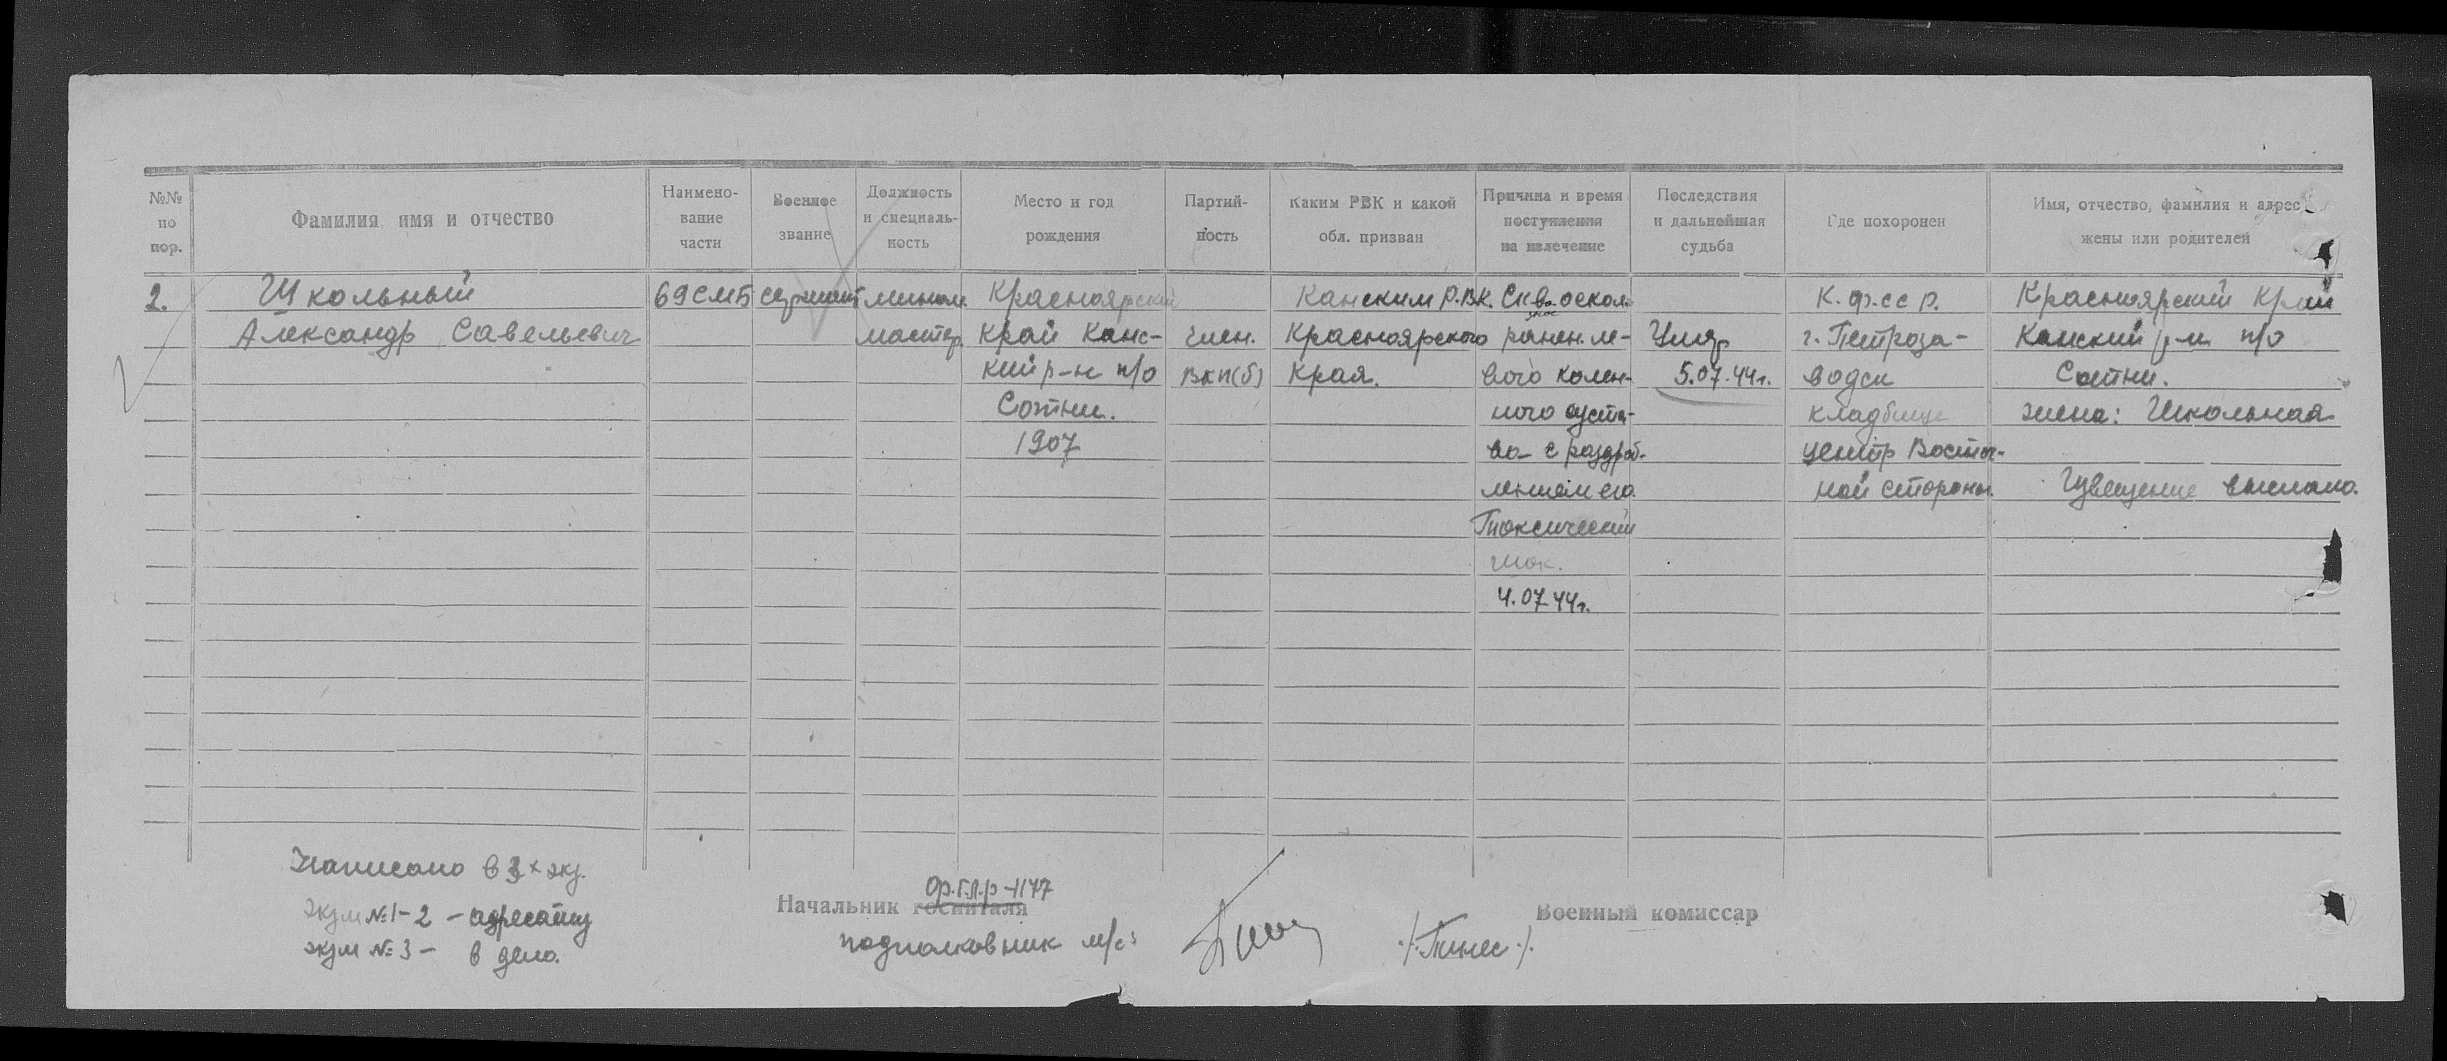 №№ по пор.
Фамилия, имя и отчество
Наимено-
вание
части
Военное
звание
Должность
и специаль-
ность
Место и год
рождения
Партий-
ность
Каким РВК и какой
обл. призван
Причина и время
поступления
на излечение
Последствия
и дальнейшая
судьба
Где похоронен
Имя, отчество, фамилия и адрес
жены или родителей
2.
Школьный
Александр Савельевич
69 СМБ
сержант
мином.
мастер
Красноярский
край Канс-
кий р-н п/о
Сотни.
1907
член.
ВКП(б)
Канским Р.В.К.
Красноярского
Края.
Скв. оскол.
ранен. ле-
вого колен-
ного суста-
ва с раздроб-
лением его.
Токсический
шок.
4.07.44г.
Умер
5.07.44г.
К.ф.сс р.
г. Петроза-
водск
кладбище
центр Восточ-
ной стороны.
Красноярский край
Канский р-н п/о
Сотни.
жена: Школьная
Извещение выслано.
Написано в 3х экз.
экзм №1-2 - адресату
экзм №3 - в дело.
Начальник госпиталя
подполковник м/с
Военный комиссар